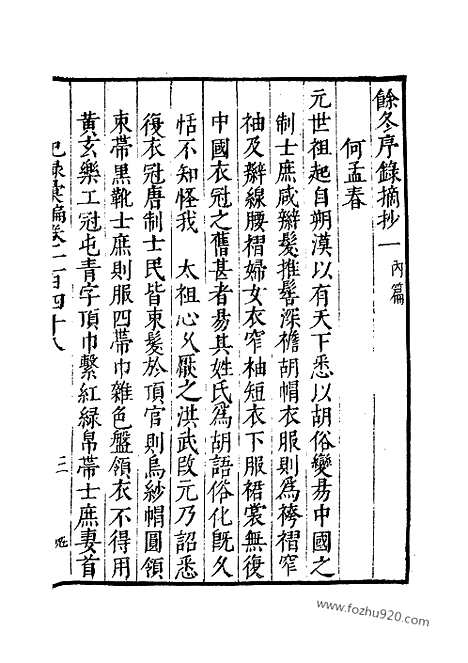 餘冬序錄摘抄一 內篇
何孟春
元世祖起自朔漠以有天下悉以胡俗變易中國之
制士庶咸辮髮推髻深襜胡帽衣服則為袴褶窄
袖及辮線腰褶婦女衣窄袖短衣下服裙裳無復
中國衣冠之舊甚者易其姓氏為胡語俗化既久
恬不知怪我 太祖心久厭之洪武改元乃詔悉
復衣冠唐制士民皆束髮於頂官則烏紗帽圓領
束帶黑靴士庶則服四帶巾雜色盤領衣不得用
黃玄樂工冠屯青字頂巾繫紅綠帛帶士庶妻首
紀錄彙編卷一百四十八
www.fozhu920.com